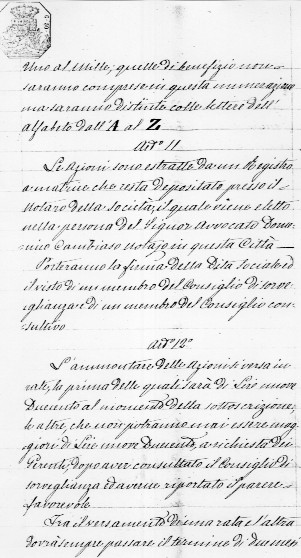 uno al mille, quelle di benefizio non
saranno comprese in questa numerazione
ma saranno distinte colle lettere dell'
alfabeto dall'A al Z
Art.º 11
Le Azioni sono estratte da un Registro
a matrice che resta depositato presso il
Notaro della Società, il quale viene eletto
nella persona del Signor Avvocato Dome-
nico Cambiaso notajo in questa Città
Porteranno la firma della Ditta Sociale ed
il visto di un membro del Consiglio di sorve-
glianza e di un membro del Consiglio con-
sultivo
Art.º 12º
L'ammontare delle Azioni si versa in
rate, la prima delle quali sarà di Lire nuove
Duecento al momento della sottoscrizione,
le altre, che non potranno mai essere mag-
giori di Lire nuove Duecento, a richiesta dei
Gerenti, dopo aver consultato il Consiglio di
sorveglianza ed averne riportato il parere
favorevole
Tra il versamento di una rata e l'altra
dovrà sempre passare il termine di due mesi